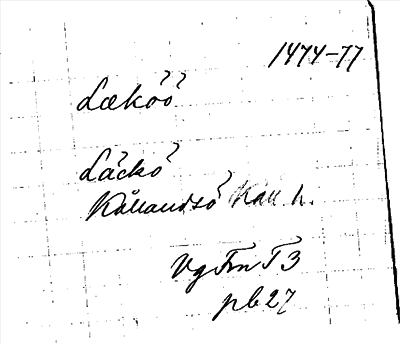 1474-77
Læköö
Läckö
Kållandsö Kåll h.
Vg Fm T 3
pb 27